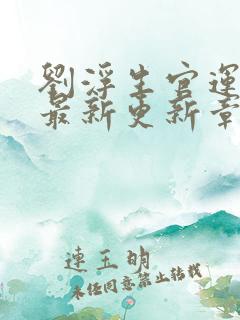 劉浮生官運
最新更新章
連玉明
未经同意禁止转载